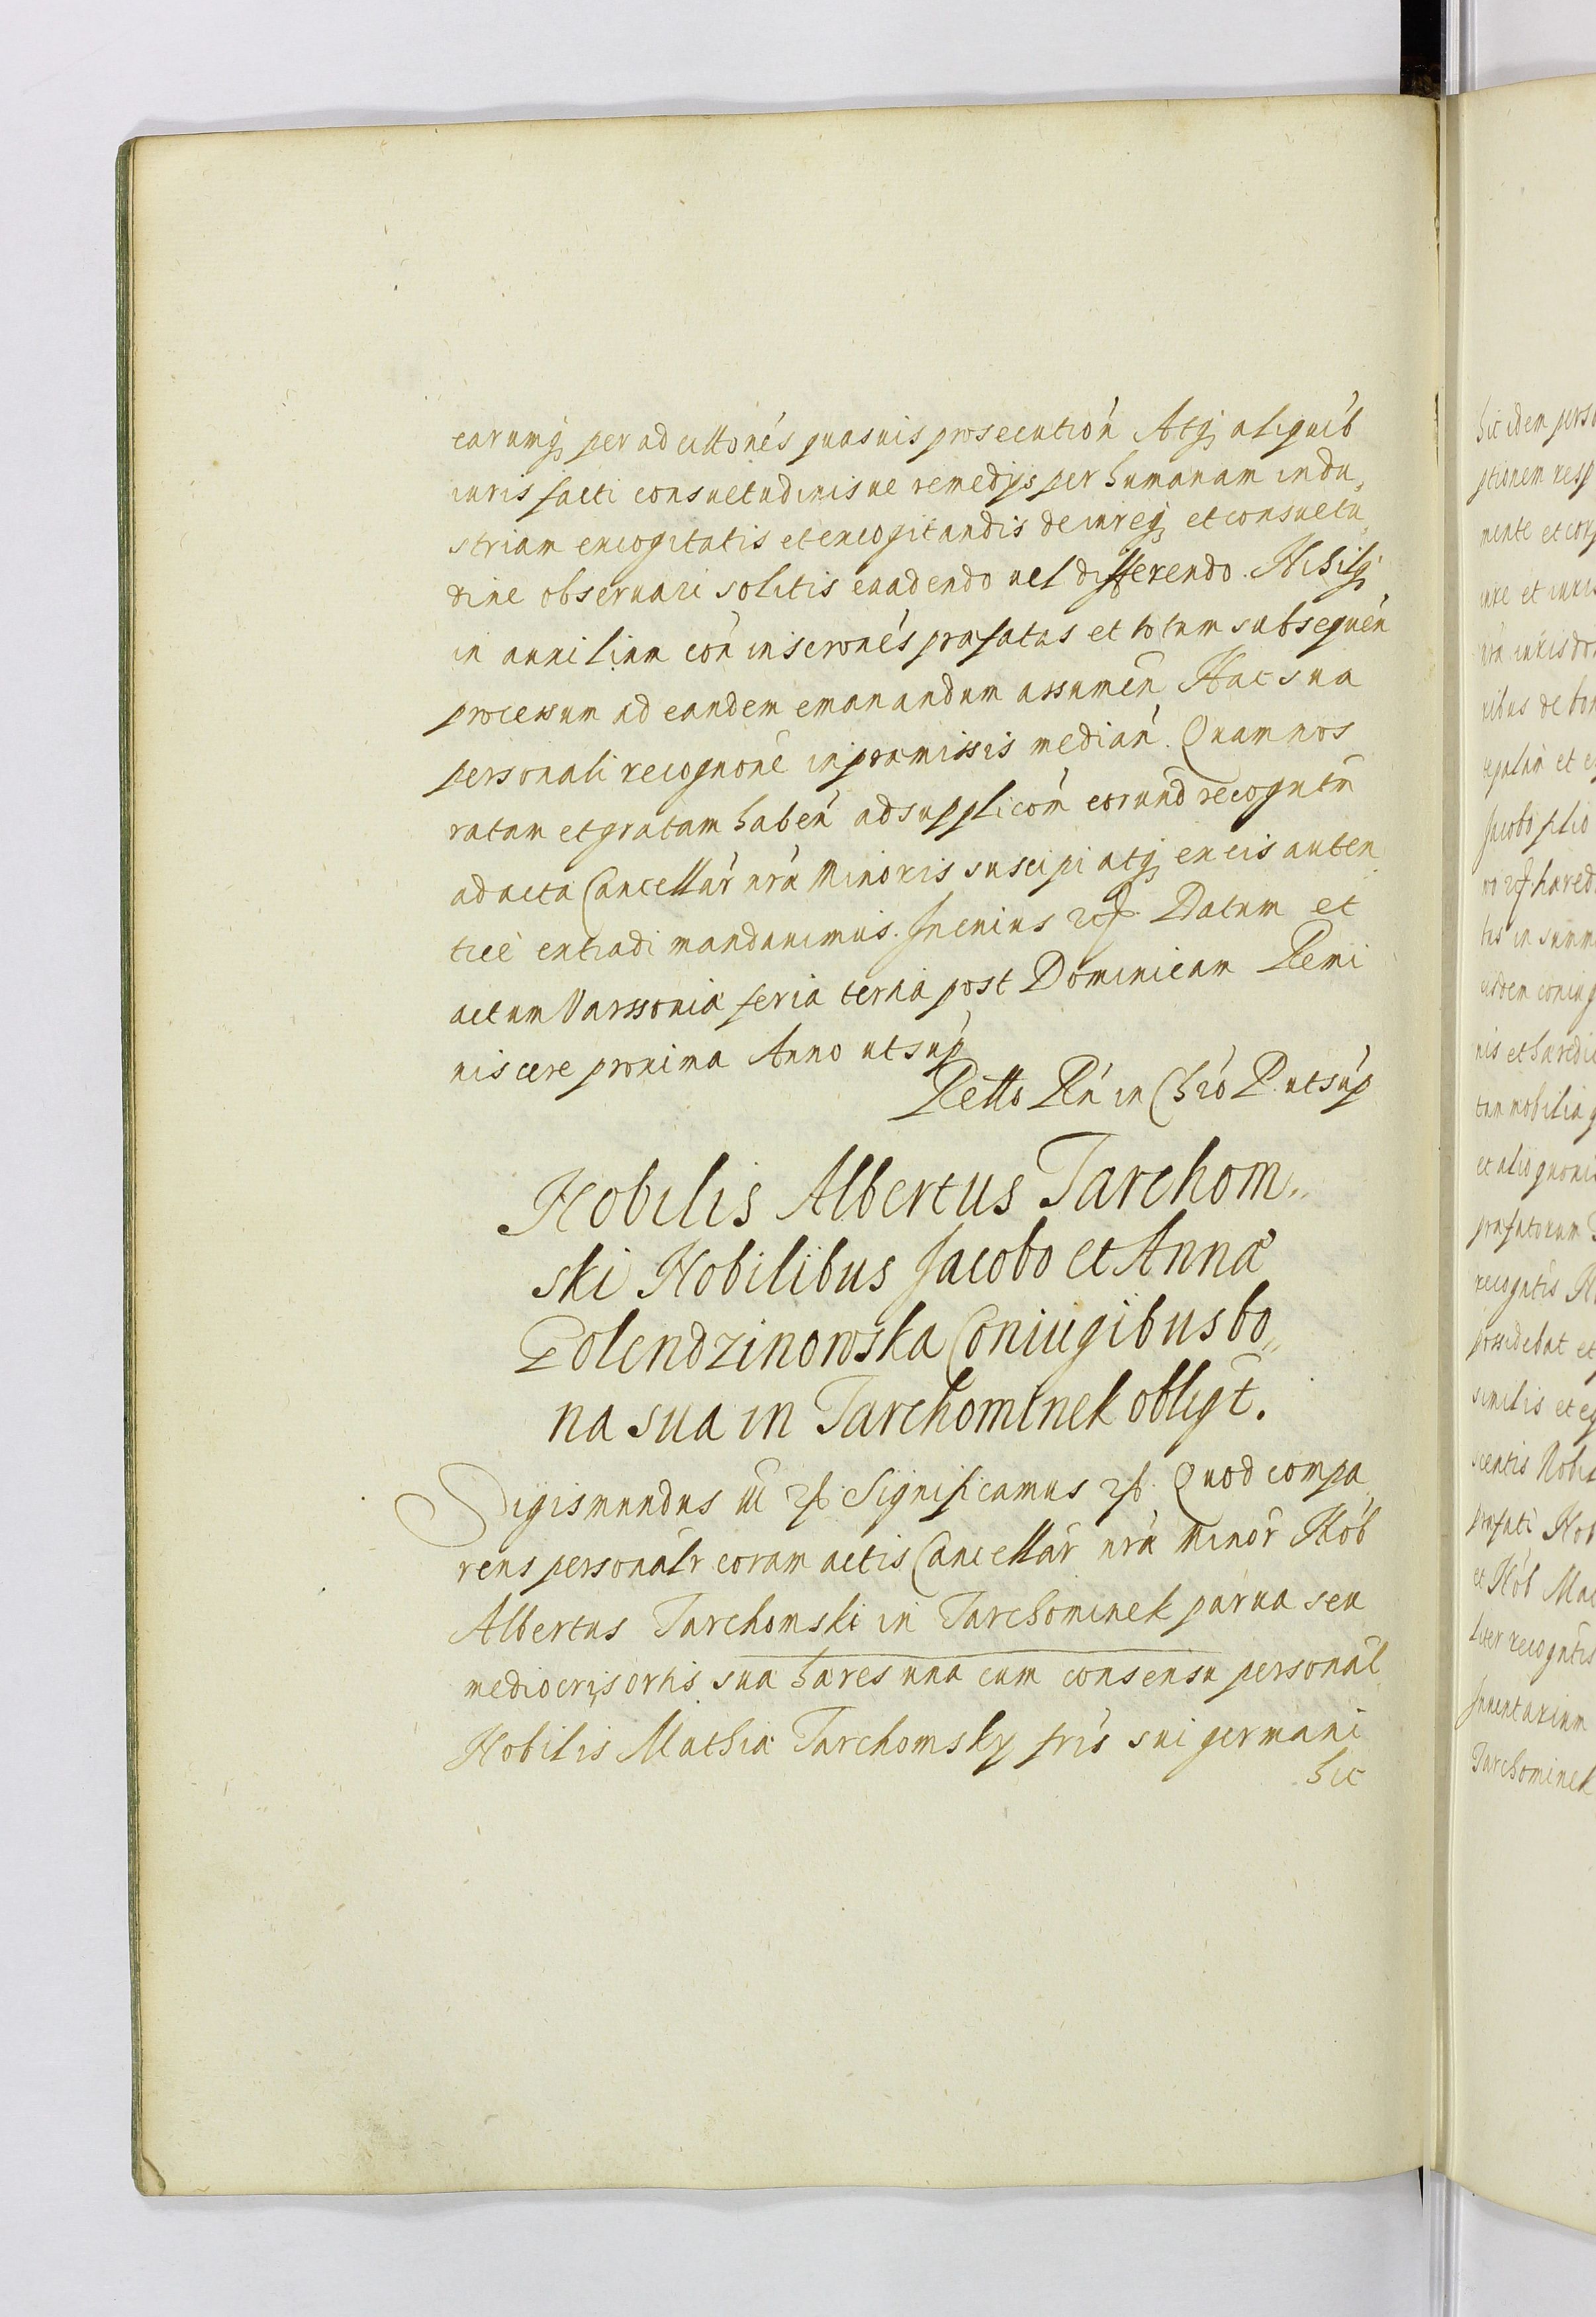 earumq per ad cittones quasuis prosecution Atq aliquib
iuris facti consuetudinisue remedijs per humanam indu„
striam excogitatis et excogitandis de iureq et consuetu„
dine obseruari solitis euadendo uel differendo. Nihilq
in auxilium con inscrones præfatas et totum subsequen
processum ad eandem emanandum assumen Hac sua
personali recognone in præmissis median. Quam nos
ratam et gratam haben ad supplicom eorund recogntm
ad acta Cancellar nræ Minoris suscipi atq ex eis auten„
tice extradi mandauimus. In cuius rei Datum et
actum Varssouiæ feria tertia post Dominicam Remi
niscere proxima Anno ut sup
Retto Rn in Chro P. ut sup
Nobilis Albertus Tarchom„
ski Nobilibus Jacobo et Annæ
Golendzinowska Coniugibus bo„
na sua in Tarchominek obligt.
Sigismundus III Significamus Quod compa„
rens personalr coram actis Cancellar nræ Minor Nob
Albertus Tarchomski in Tarchominek parua seu
mediocris ortis sua hæres una cum consensu personal
Nobilis Mathiæ Tarchomsky fris sui germani
hic
hic idem perso
ptionem resp
mente et corp
iure et iuris
nra iurisdo
ribus de bon
Jacobo filio
hæred
tus in summ
eisdem coniug
nis et hæredi
tam mobilia q
et alio quouis
præfatorum
recogntis N
possidebat et
similis et eq
scentis Nobi
præfati Nob
et Nob Mat
liter recogntis
Inuentarium
Tarchominek